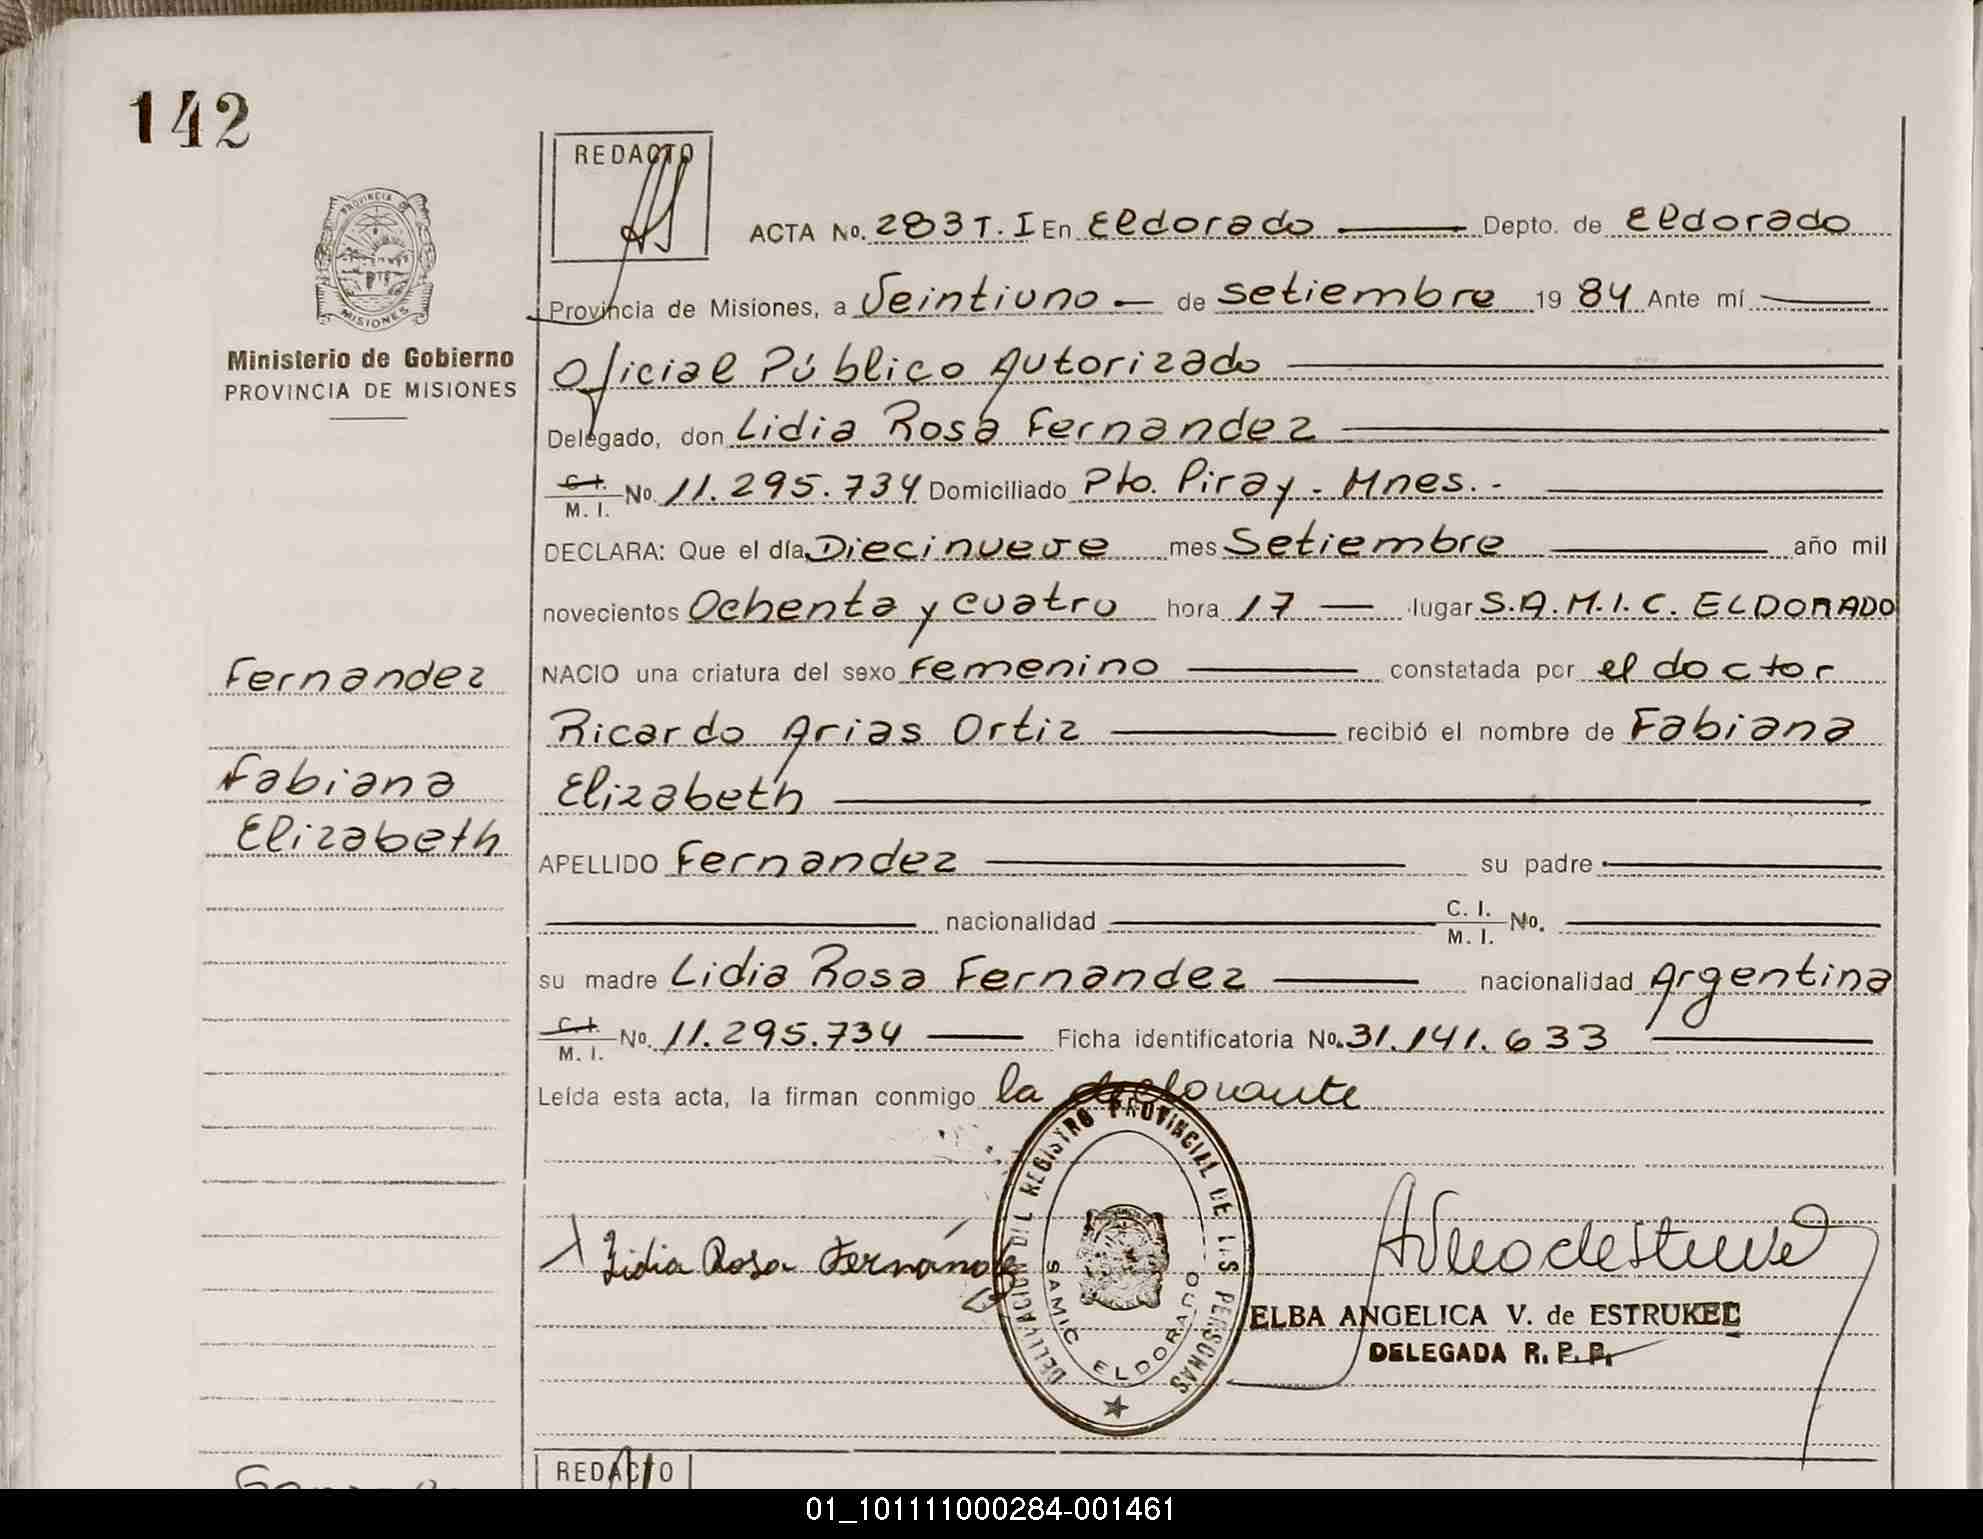 142
REDACTO
ACTA No. 283 T. I En Eldorado Depto. de Eldorado
Provincia de Misiones, a Veintiuno de Setiembre 19 84 Ante mí
PROVINCIA DE MISIONES
Ministerio de Gobierno
PROVINCIA DE MISIONES
Oficial Público Autorizado
Delegado, don Lidia Rosa Fernandez
C. I. M. I. No. 11.295.734 Domiciliado Pto. Piray - Mnes. -
DECLARA: Que el día Diecinueve mes Setiembre año mil
novecientos Ochenta y cuatro hora 17 lugar S.A.M.I.C. ELDORADO
Fernandez
NACIO una criatura del sexo Femenino constatada por el doctor
Ricardo Arias Ortiz recibió el nombre de Fabiana
Fabiana
Elizabeth
Elizabeth
APELLIDO Fernandez su padre
nacionalidad C. I. M. I. No.
su madre Lidia Rosa Fernandez nacionalidad Argentina
C. I. M. I. No. 11.295.734 Ficha identificatoria No. 31.141.633
Leída esta acta, la firman conmigo la declarante
Lidia Rosa Fernández
DEL REGISTRO PROVINCIAL DE LAS PERSONAS
SAMIC ELDORADO
ELBA ANGELICA V. de ESTRUKEL
DELEGADA R. P. P.
REDACTO
01_101111000284-001461